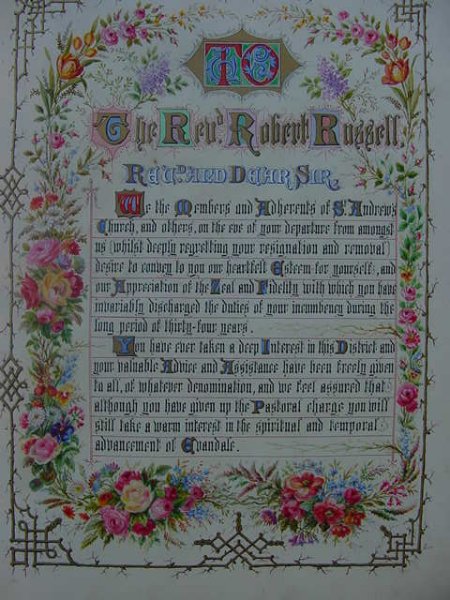 TO
The Revd Robert Russell.
Revd. and Dear Sir,
We the Members and Adherents of St Andrew's
Church, and others, on the eve of your departure from amongst
us (whilst deeply regretting your resignation and removal)
desire to convey to you our heartfelt Esteem for yourself, and
our Appreciation of the Zeal and Fidelity with which you have
invariably discharged the duties of your incumbency during the
long period of thirty-four years.
You have ever taken a deep Interest in this District and
your valuable Advice and Assistance have been freely given
to all, of whatever denomination, and we feel assured that
although you have given up the Pastoral charge you will
still take a warm interest in the spiritual and temporal
advancement of Evandale.